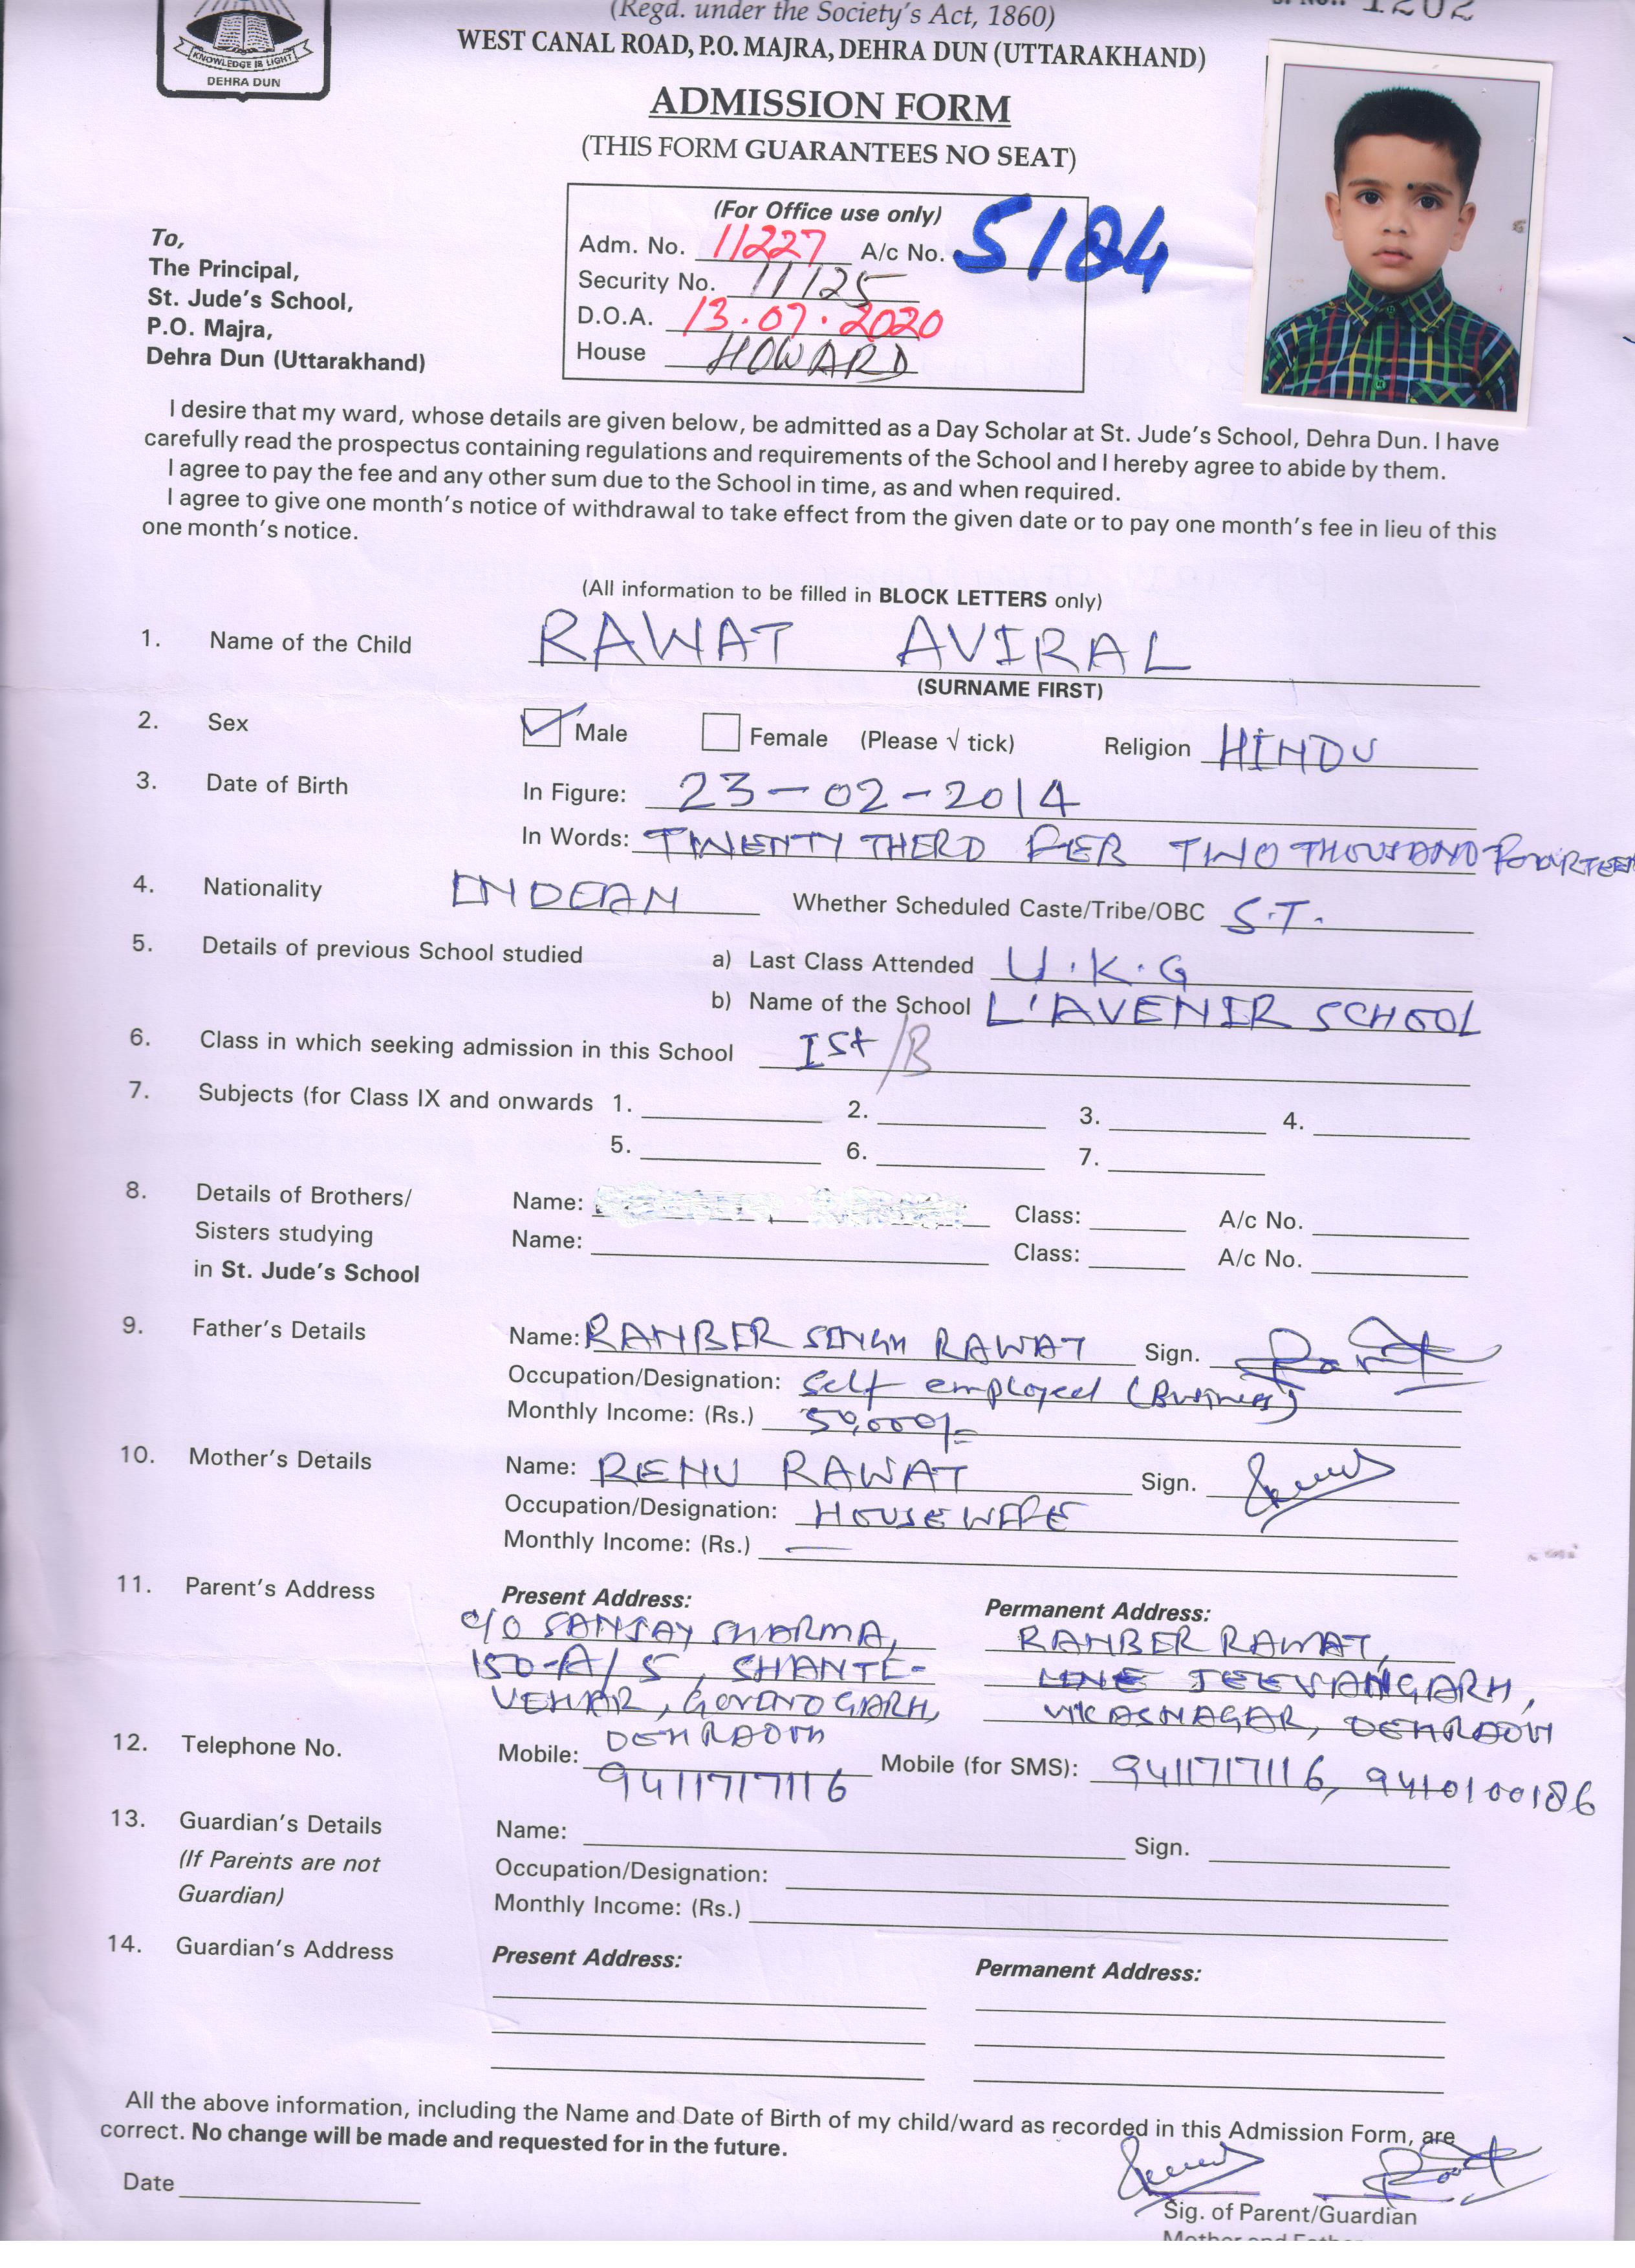 (Regd. under the Society's Act, 1860)
1202
WEST CANAL ROAD, P.O. MAJRA, DEHRA DUN (UTTARAKHAND)
KNOWLEDGE IS LIGHT
DEHRA DUN
ADMISSION FORM
(THIS FORM GUARANTEES NO SEAT)
(For Office use only)
Adm. No. 11227 A/c No. 5184
Security No. 11125
D.O.A. 13.07.2020
House HOWARD
To,
The Principal,
St. Jude's School,
P.O. Majra,
Dehra Dun (Uttarakhand)
I desire that my ward, whose details are given below, be admitted as a Day Scholar at St. Jude's School, Dehra Dun. I have
carefully read the prospectus containing regulations and requirements of the School and I hereby agree to abide by them.
I agree to pay the fee and any other sum due to the School in time, as and when required.
I agree to give one month's notice of withdrawal to take effect from the given date or to pay one month's fee in lieu of this
one month's notice.
(All information to be filled in BLOCK LETTERS only)
1. Name of the Child RAWAT AVIRAL
(SURNAME FIRST)
2. Sex Male Female (Please √ tick) Religion HINDU
3. Date of Birth In Figure: 23-02-2014
In Words: TWENTY THERD FEB TWO THOUSAND FOURTEEN
4. Nationality INDEAN Whether Scheduled Caste/Tribe/OBC S.T.
5. Details of previous School studied a) Last Class Attended U.K.G
b) Name of the School L'AVENIR SCHOOL
6. Class in which seeking admission in this School Ist/B
7. Subjects (for Class IX and onwards 1. 2. 3. 4.
5. 6. 7.
8. Details of Brothers/ Name: Class: A/c No.
Sisters studying Name: Class: A/c No.
in St. Jude's School
9. Father's Details Name: RANBER SINGH RAWAT Sign.
Occupation/Designation: Self employed (Business)
Monthly Income: (Rs.) 50,000/=
10. Mother's Details Name: RENU RAWAT Sign.
Occupation/Designation: HOUSEWIFE
Monthly Income: (Rs.) —
11. Parent's Address Present Address: Permanent Address:
c/o SANJAY SHARMA, RANBER RAWAT,
150-A/5, SHANTE- LINE JEEVANGARH,
VEHAR, GOVINDGARH, VIKASNAGAR, DEHRADUN
DEHRADUN
12. Telephone No. Mobile: 9411717116 Mobile (for SMS): 9411717116, 9410100186
13. Guardian's Details Name: Sign.
(If Parents are not Occupation/Designation:
Guardian) Monthly Income: (Rs.)
14. Guardian's Address Present Address: Permanent Address:
All the above information, including the Name and Date of Birth of my child/ward as recorded in this Admission Form, are
correct. No change will be made and requested for in the future.
Date
Sig. of Parent/Guardian